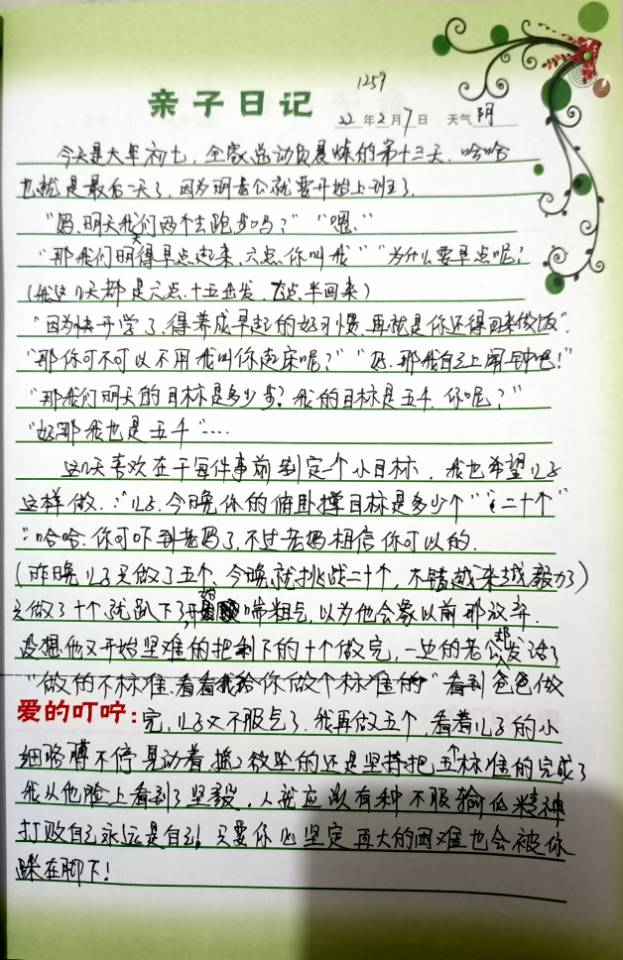 1259
亲子日记
22年2月7日 天气 阴
今天是大年初七,全家总动员晨炼的第十三天,哈哈
也就是最后一天了,因为明老公就要开始上班了.
"妈,明天我们两个去跑步吗?""嗯."
"那我们明天得早点起来,六点,你叫我""为什么要早点呢?
(我这几天都是六点十五出发,七点半回来)
"因为快开学了,得养成早起的好习惯,再就是你还得回来做饭".
"那你可不可以不用我叫你起床呢?""好,那我自己上闹钟吧!"
"那我们明天的目标是多少步?我的目标是五千,你呢?"
"好那我也是五千"....
这几天喜欢在干每件事前制定一个小目标,我也希望儿子
这样做.:"儿子,今晚你的俯卧撑目标是多少个""二十个"
:哈哈.你可吓到老妈了,不过老妈相信你可以的.
(昨晚儿子只做了五个,今晚就挑战二十个,不错越来越毅力了)
只做了十个,就趴下了开始喘粗气,以为他会象以前那放弃.
没想他又开始坚难的把剩下的十个做完,一边的老公却发话了
"做的不标准,看看我给你做个标准的"看到爸爸做
爱的叮咛: 完,儿子又不服气了.我再做五个,看着儿子的小
细胳膊不停晃动着,摇摇欲坠的还是坚持把五个标准的完成了
我从他脸上看到了坚毅,人就应该有种不服输的精神
打败自己永远是自己,只要你心坚定再大的困难也会被你
踩在脚下!